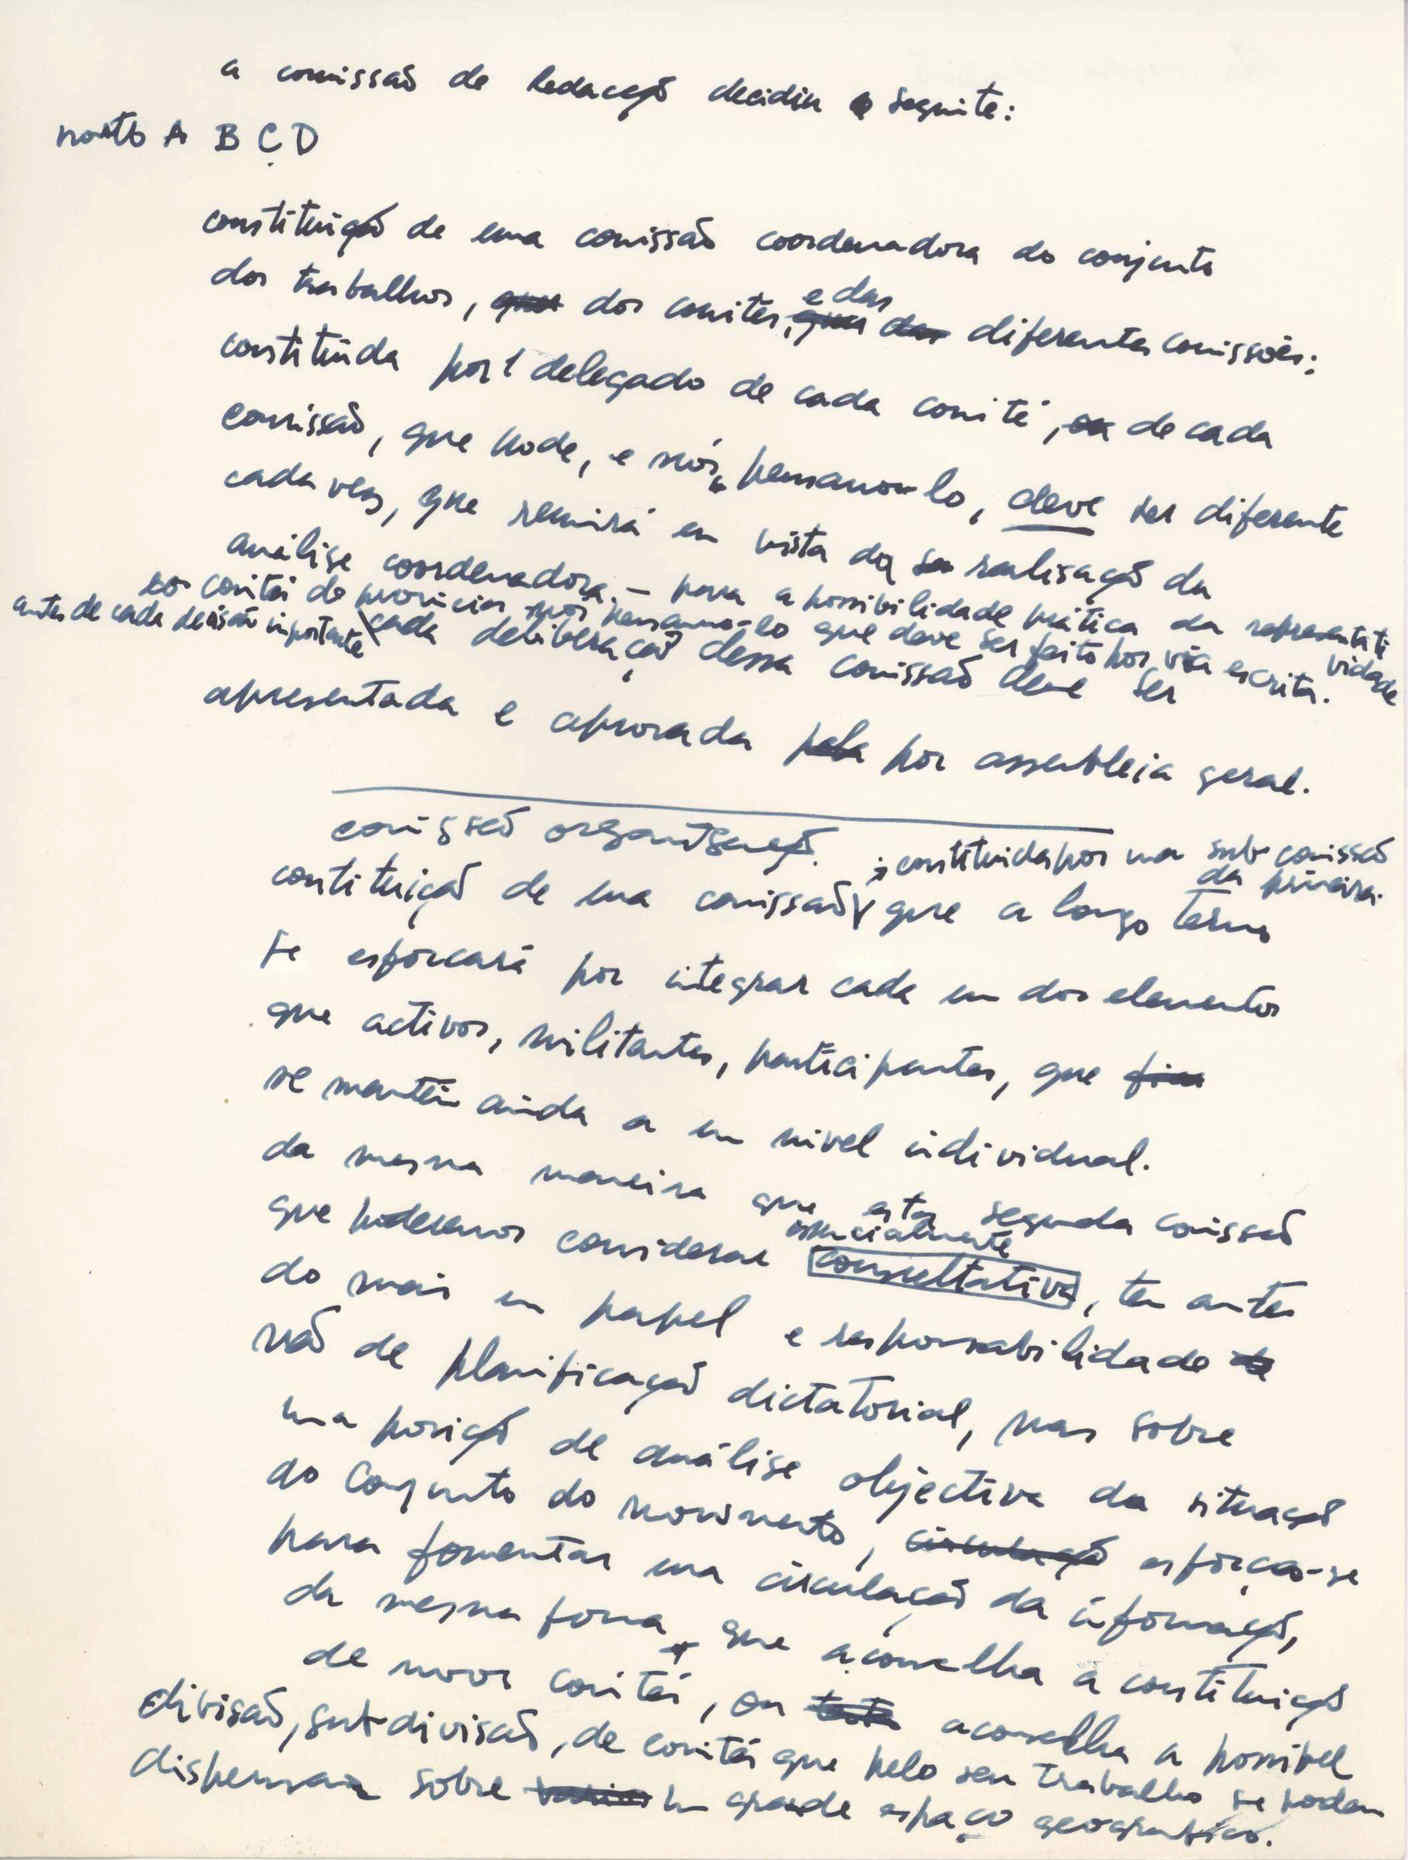 a comissão de Redacção decidiu o seguinte:
A B C D
constituição de uma comissão coordenadora do conjunto
dos trabalhos, que dos comités, e das diferentes comissões:
constituida por 1 delegado de cada comité, ou de cada
comissão, que pode, e nós pensamo-lo, deve ser diferente
cada vez, que reunirá em vista da realisação da
análise coordenadora. – para a possibilidade prática da representatividade
eo comités de provincia, nós pensamo-lo que deve ser feito por via escrita.
antes de cada decisão importante
cada deliberação dessa comissão deve ser
apresentada e aprovada pela por assembleia geral.
comissão organisação.
; constituida por uma sub comissão
da primeira.
constituição de uma comissão, que a longo termo
se esforcará por integrar cada um dos elementos
que activos, militantes, participantes, que
se mantêm ainda a um nivel individual.
da mesma maneira que esta segunda comissão
que poderemos considerar essencialmente consultativa, tem antes
do mais um papel e responsabilidade de
não de planificação dictatorial, mas sobre
uma posição de análise objectiva da situação
do Conjunto do movimento, circulação esforça-se
para fomentar uma circulação da informação,
da mesma forma que aconselha a constituição
de novos comités, ou aconselha a possivel
divisão, sub-divisão, de comités que pelo seu trabalho se podem
dispensar sobre um grande espaço geografico.